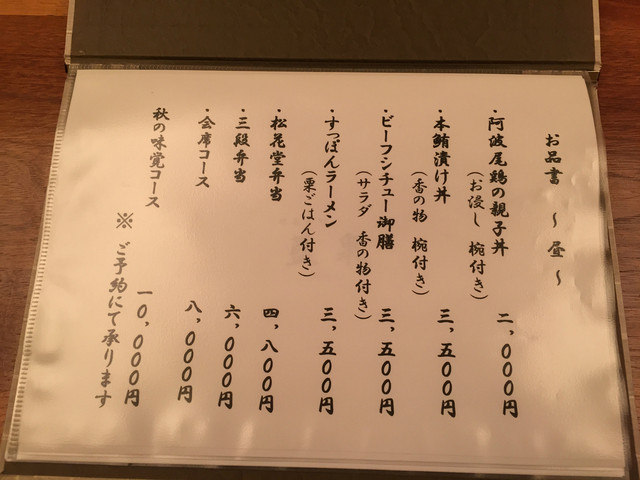 お品書 ～昼～
・阿波尾鶏の親子丼 二,〇〇〇円
(お浸し 椀付き)
・本鮪漬け丼 三,五〇〇円
(香の物 椀付き)
・ビーフシチュー御膳 三,五〇〇円
(サラダ 香の物付き)
・すっぽんラーメン 三,五〇〇円
(栗ごはん付き)
・松花堂弁当 四,八〇〇円
・三段弁当 六,〇〇〇円
・会席コース 八,〇〇〇円
秋の味覚コース 一〇,〇〇〇円
※ ご予約にて承ります